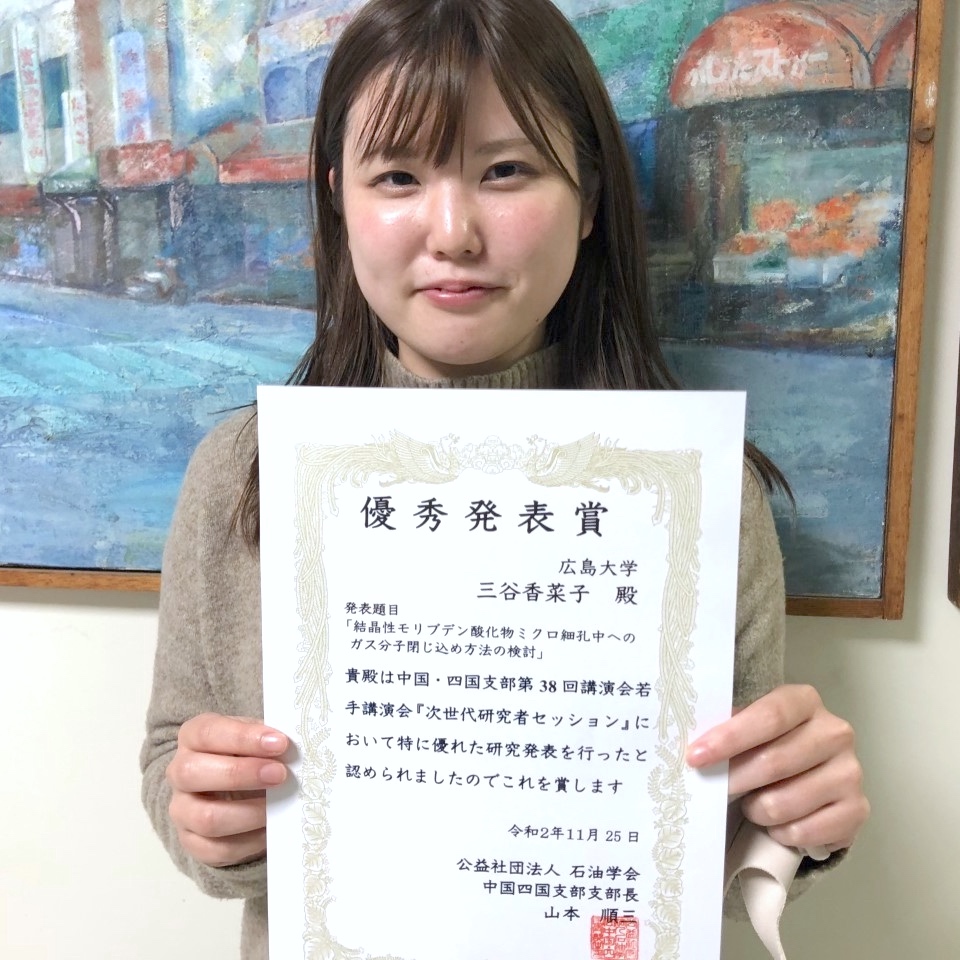 優秀発表賞
広島大学
三谷香菜子 殿
発表題目
「結晶性モリブデン酸化物ミクロ細孔中への
ガス分子閉じ込め方法の検討」
貴殿は中国・四国支部第 38 回講演会若
手講演会『次世代研究者セッション』に
おいて特に優れた研究発表を行ったと
認められましたのでこれを賞します
令和2年11月 25 日
公益社団法人 石油学会
中国四国支部支部長
山本 順三